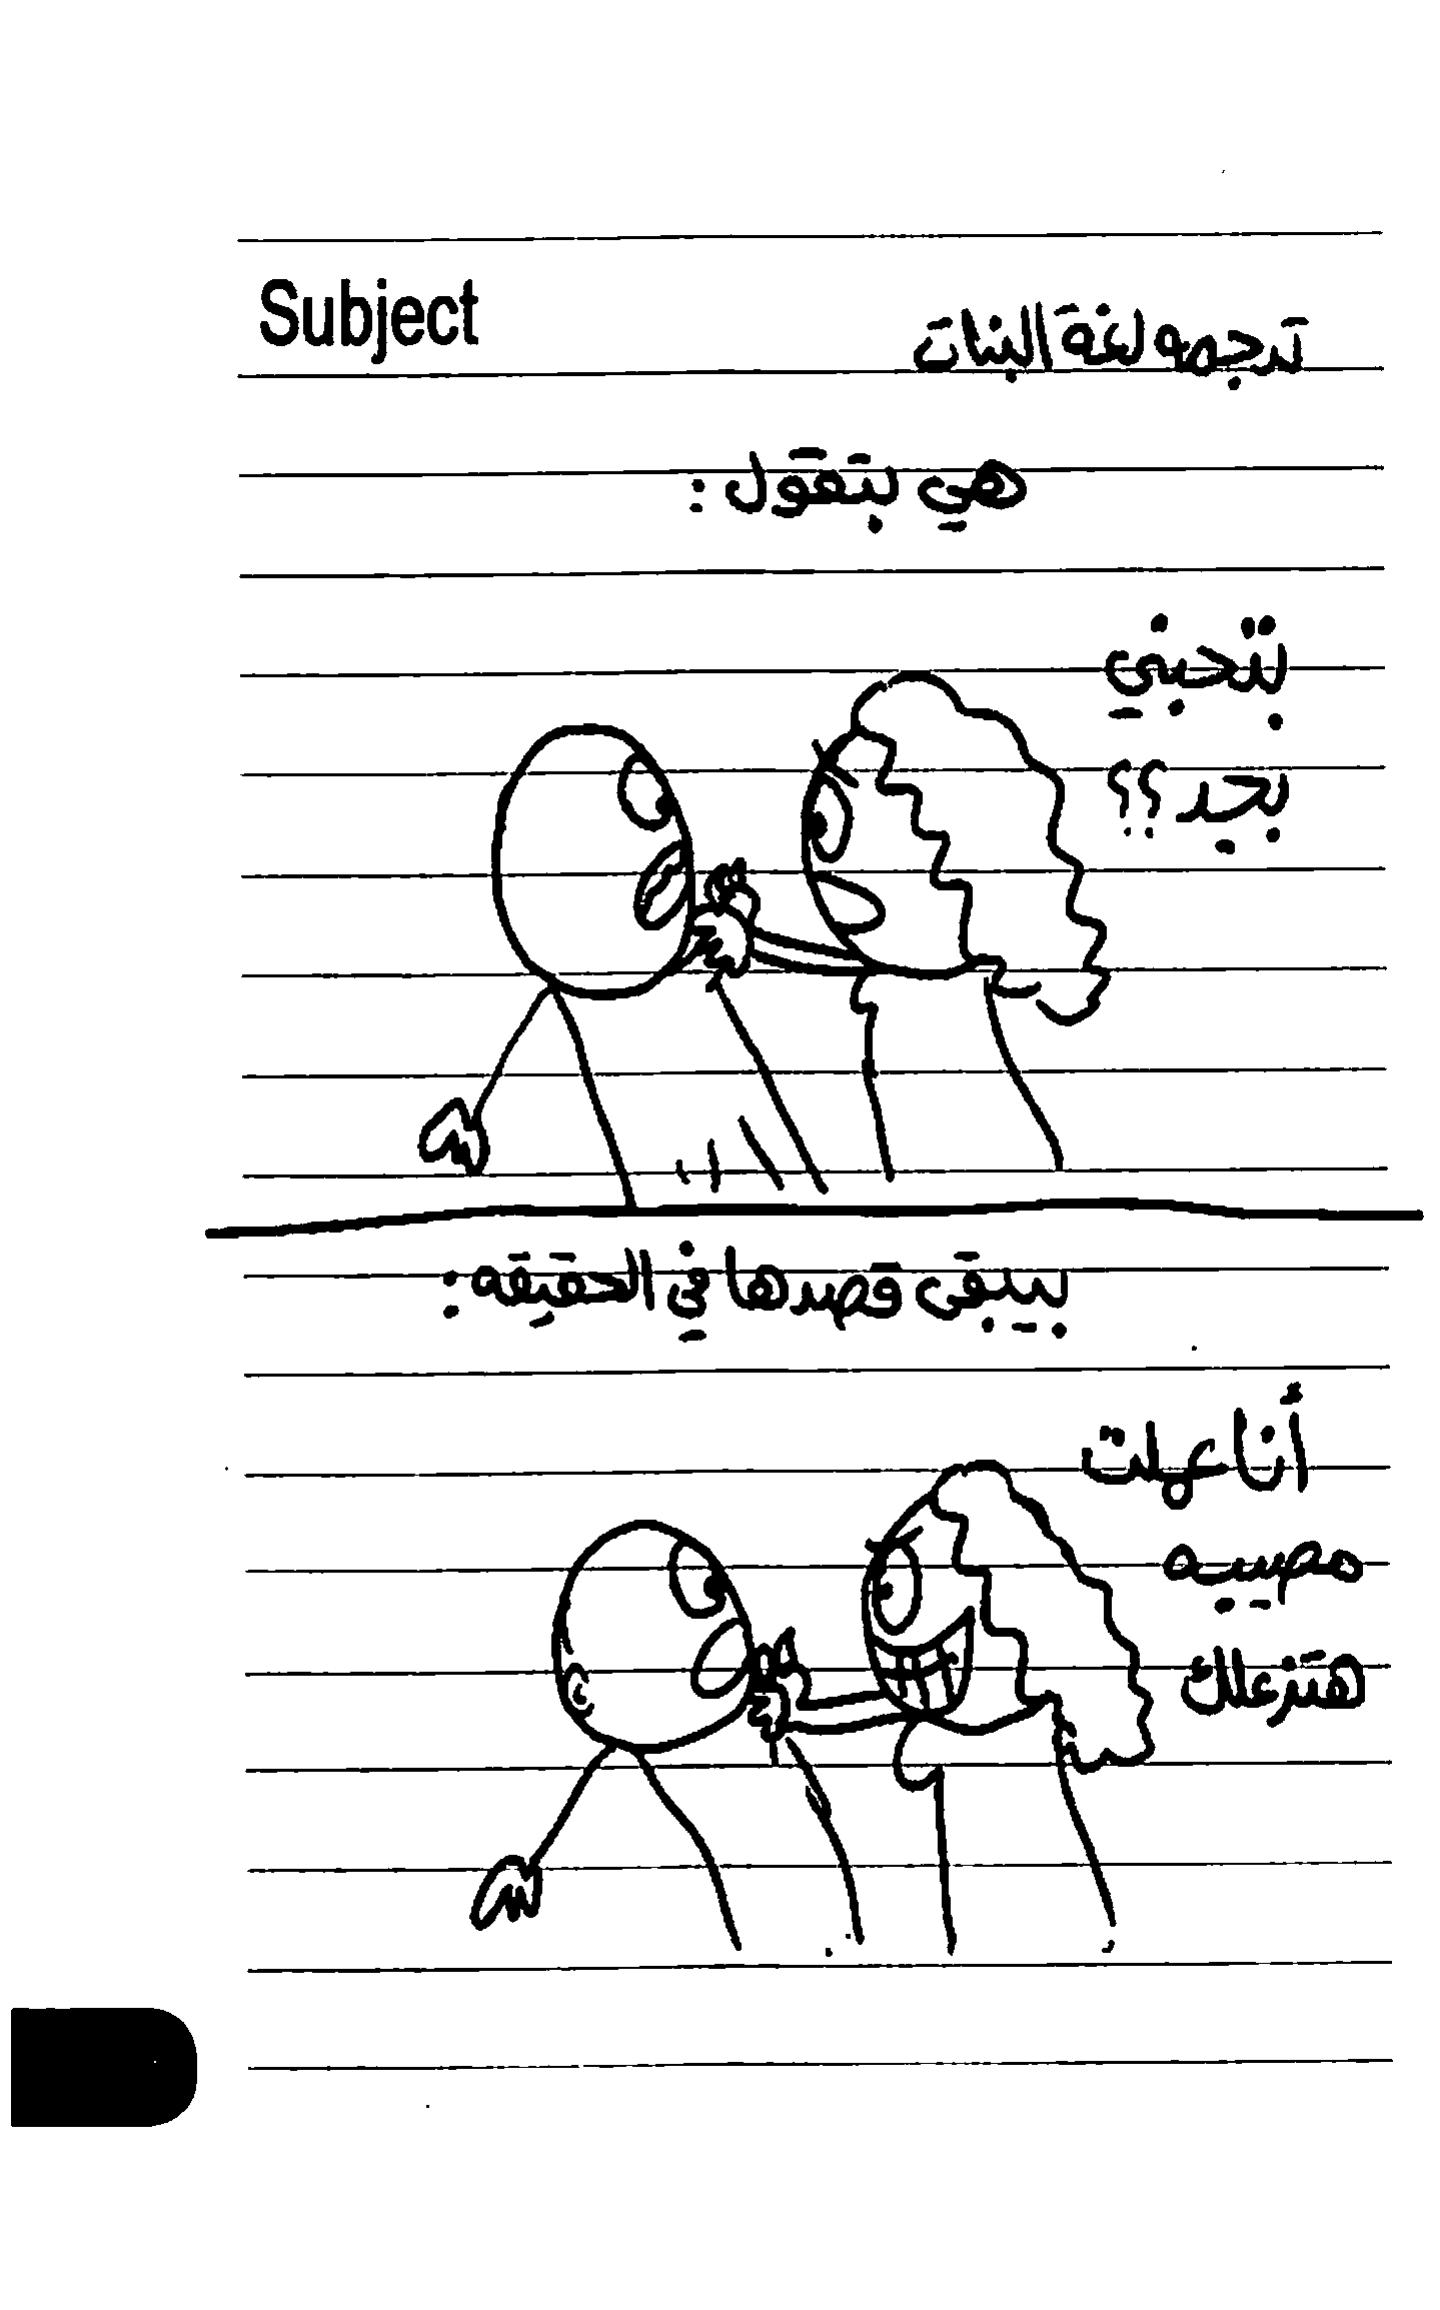 Subject
ترجمه لغة البنات
هي بتقول :
بتحبني
بجد ؟؟
بيبقى قصدها في الحقيقه :
أنا عملت
مصيبه
هتزعلك